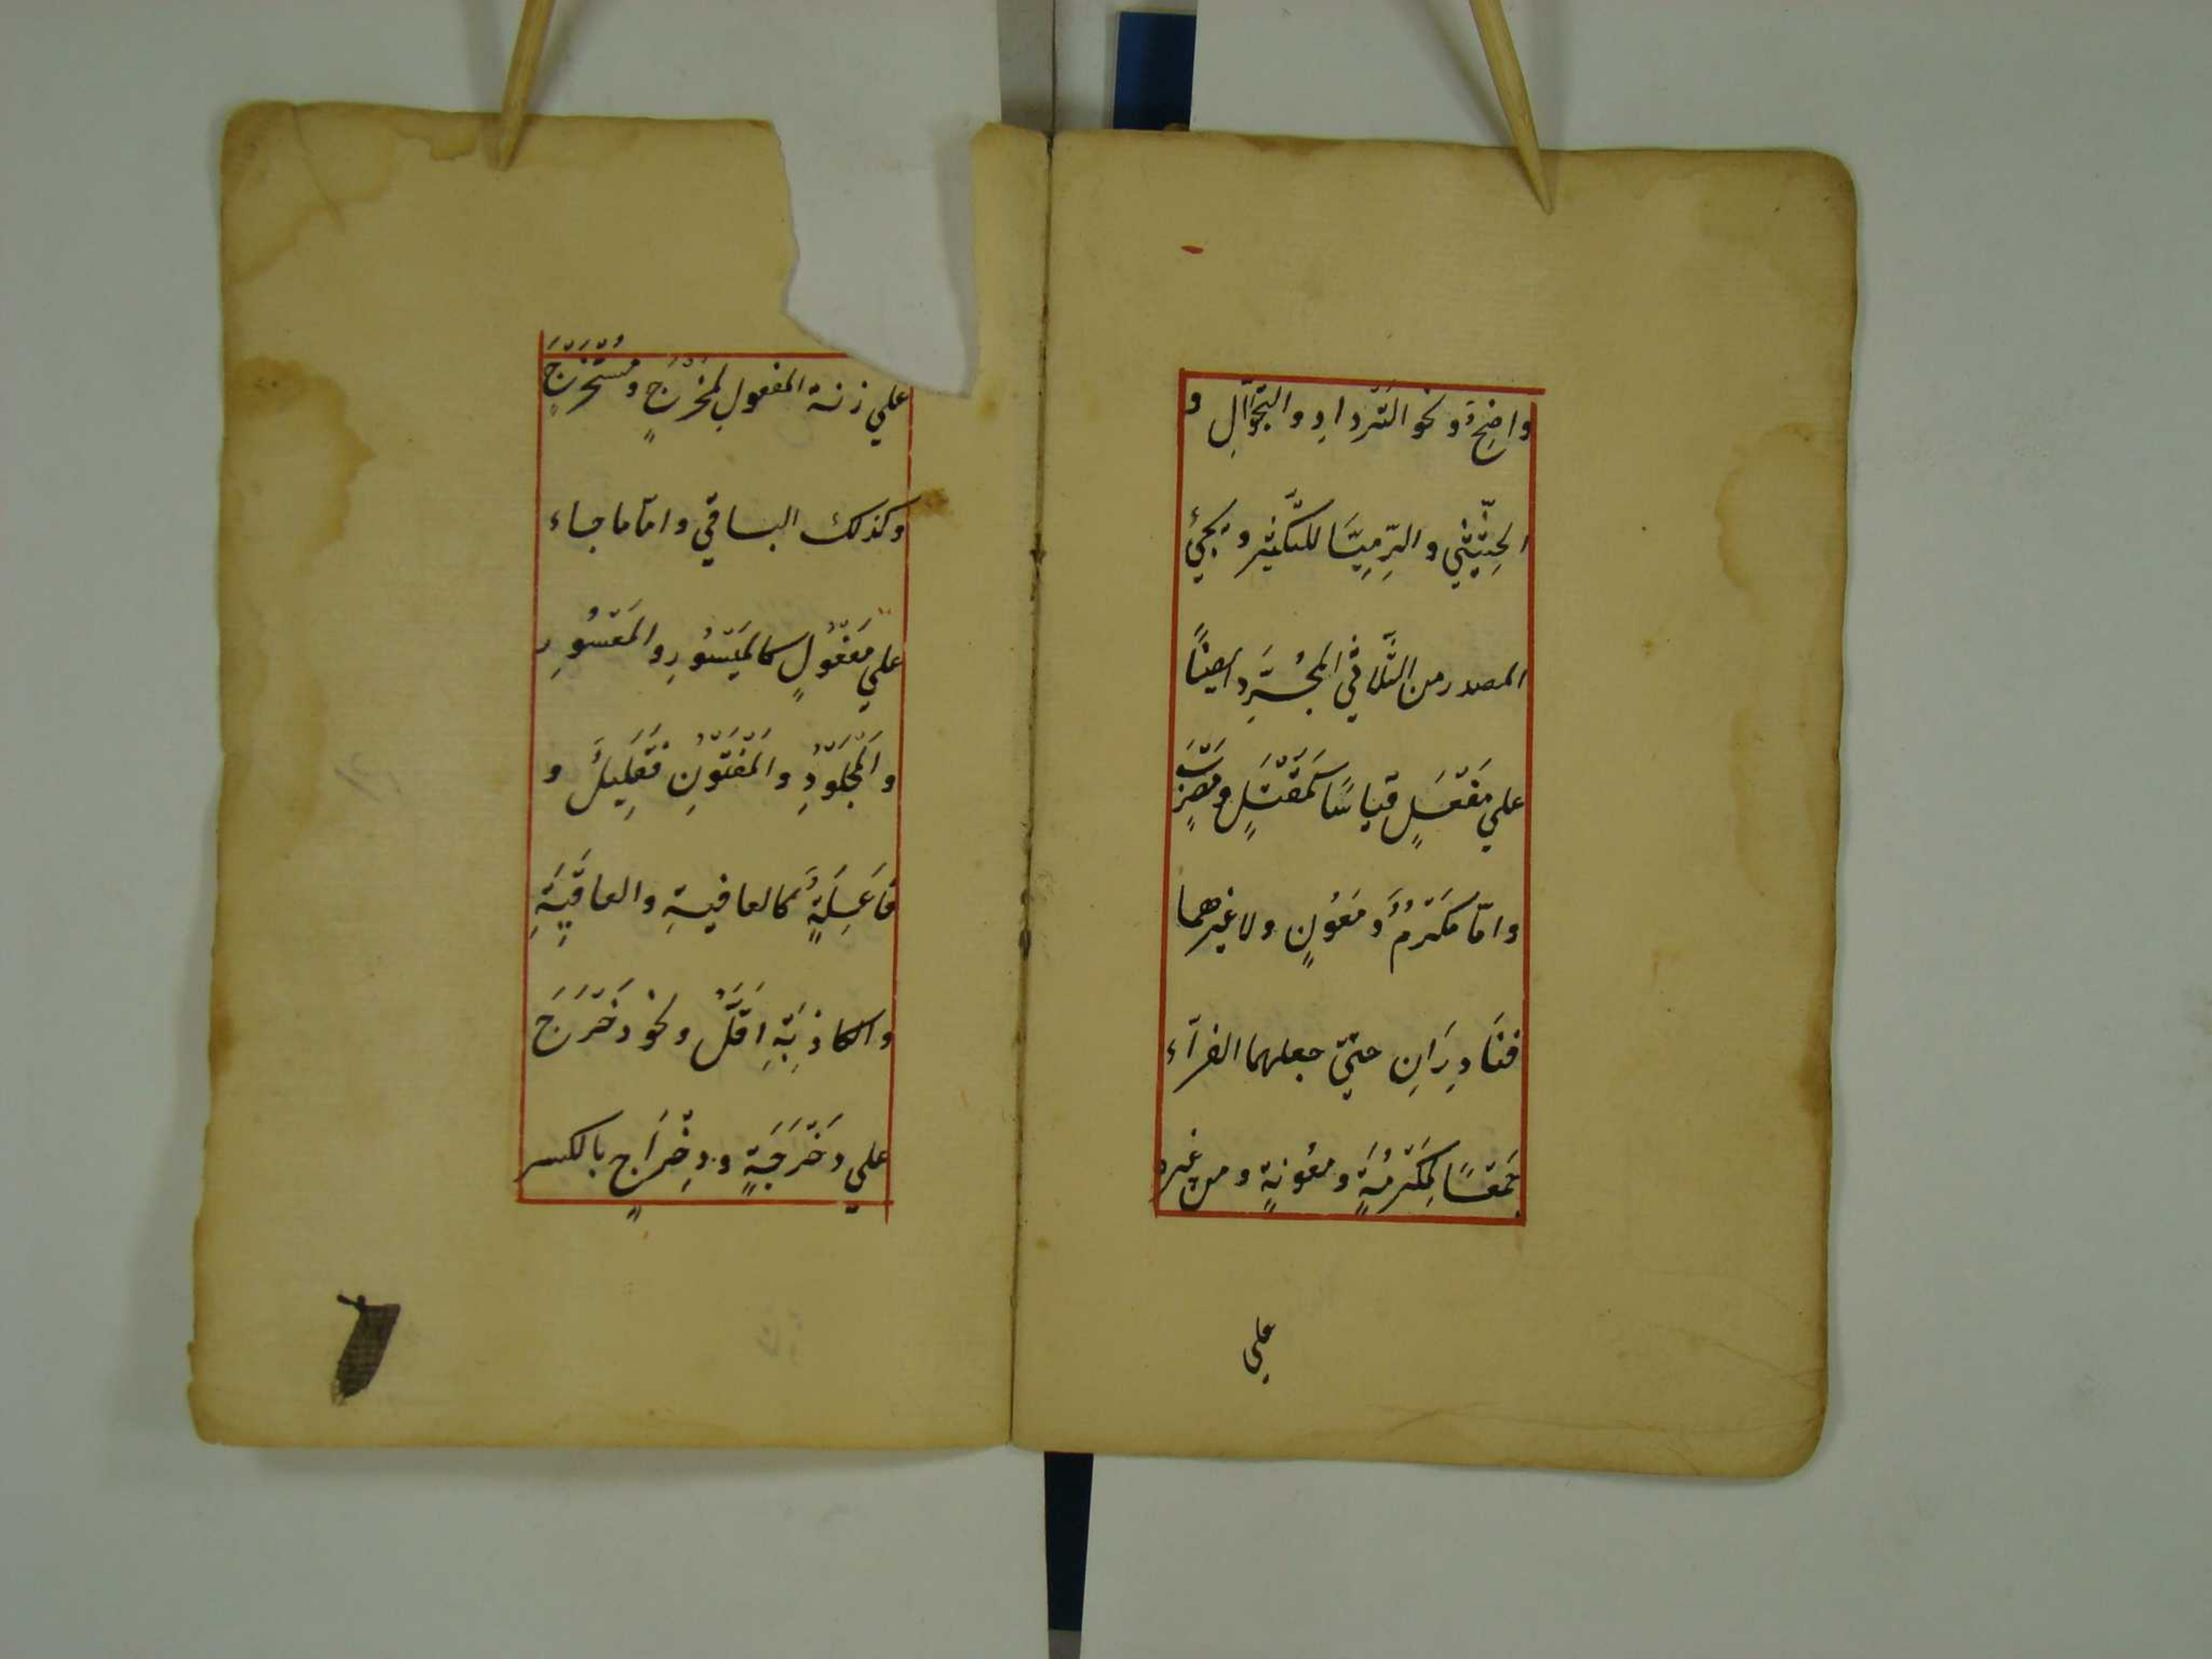 واضِحٌ ونحو التَّرْدادِ والتَّجْوالِ و
الحِثِّيْثي والرِّمِيَّا للتَّكثير ويجئُ
المصدر من الثُّلاثيِّ المجُرَّدِ ايضًا
علي مَفْعَلٍ قياسًا كَمَقْتَلٍ ومَضْرَبٍ
وامّا مَكْرُمٌ ومَعُوْنٍ ولا غيرهما
فنَادِرَانِ حتّيٰ جعلهما الفرّآء
جَمْعًا لِمَكْرُمَةٍ ومعُونةٍ ومن غيره
علي
علي زنة المفعول لِمُخْرَجٍ ومُسْتَخْرَجٍ
وكذلك الباقي وامّا ما جاء
علي مَفْعُوْلٍ كالمَيْسُورِ والمَعْسُورِ
والمَجْلُوْدِ والمَفْتُوْنِ فَقَلِيلٌ و
فَاعَلِةٍ كالعافيةِ والعاقِبَةِ
والكاذِبَةِ اَقَلُّ ونحو دَحْرَجَ
علي دَحْرَجَةٍ ودِحْرَاجٍ بالكسر